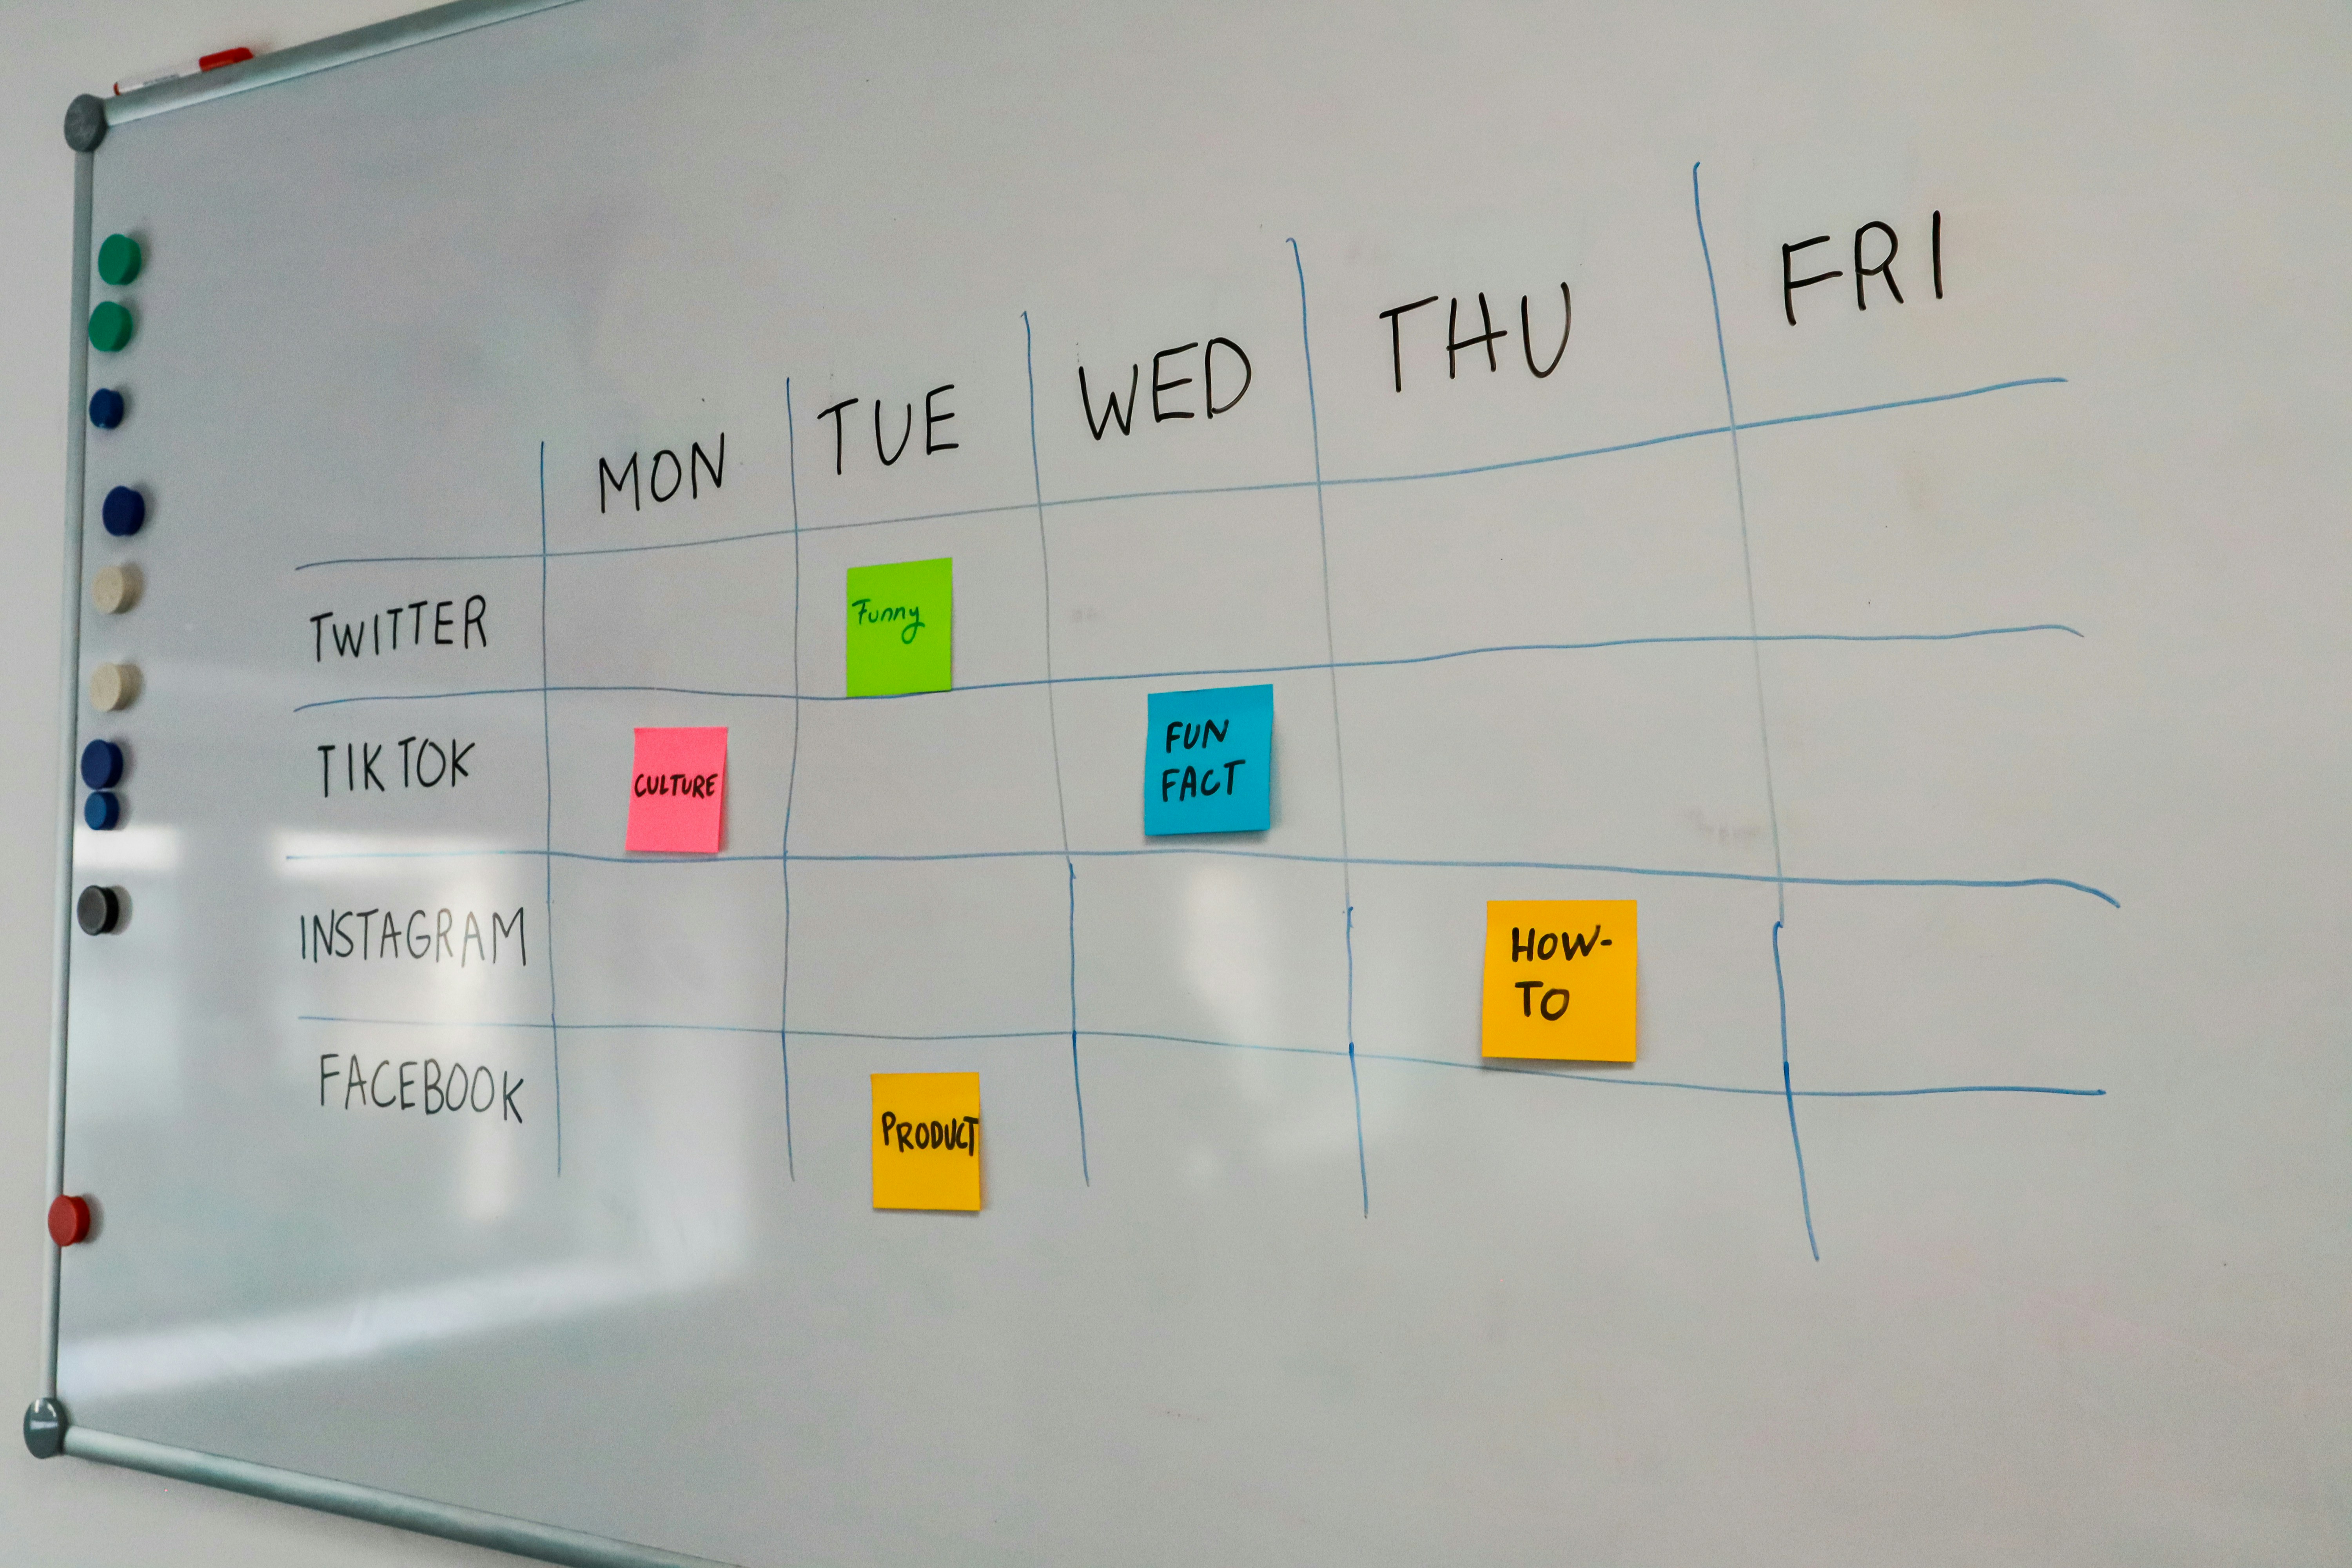 MON TUE WED THU FRI
TWITTER Funny
TIK TOK CULTURE FUN
FACT
INSTAGRAM HOW-
TO
FACEBOOK PRODUCT